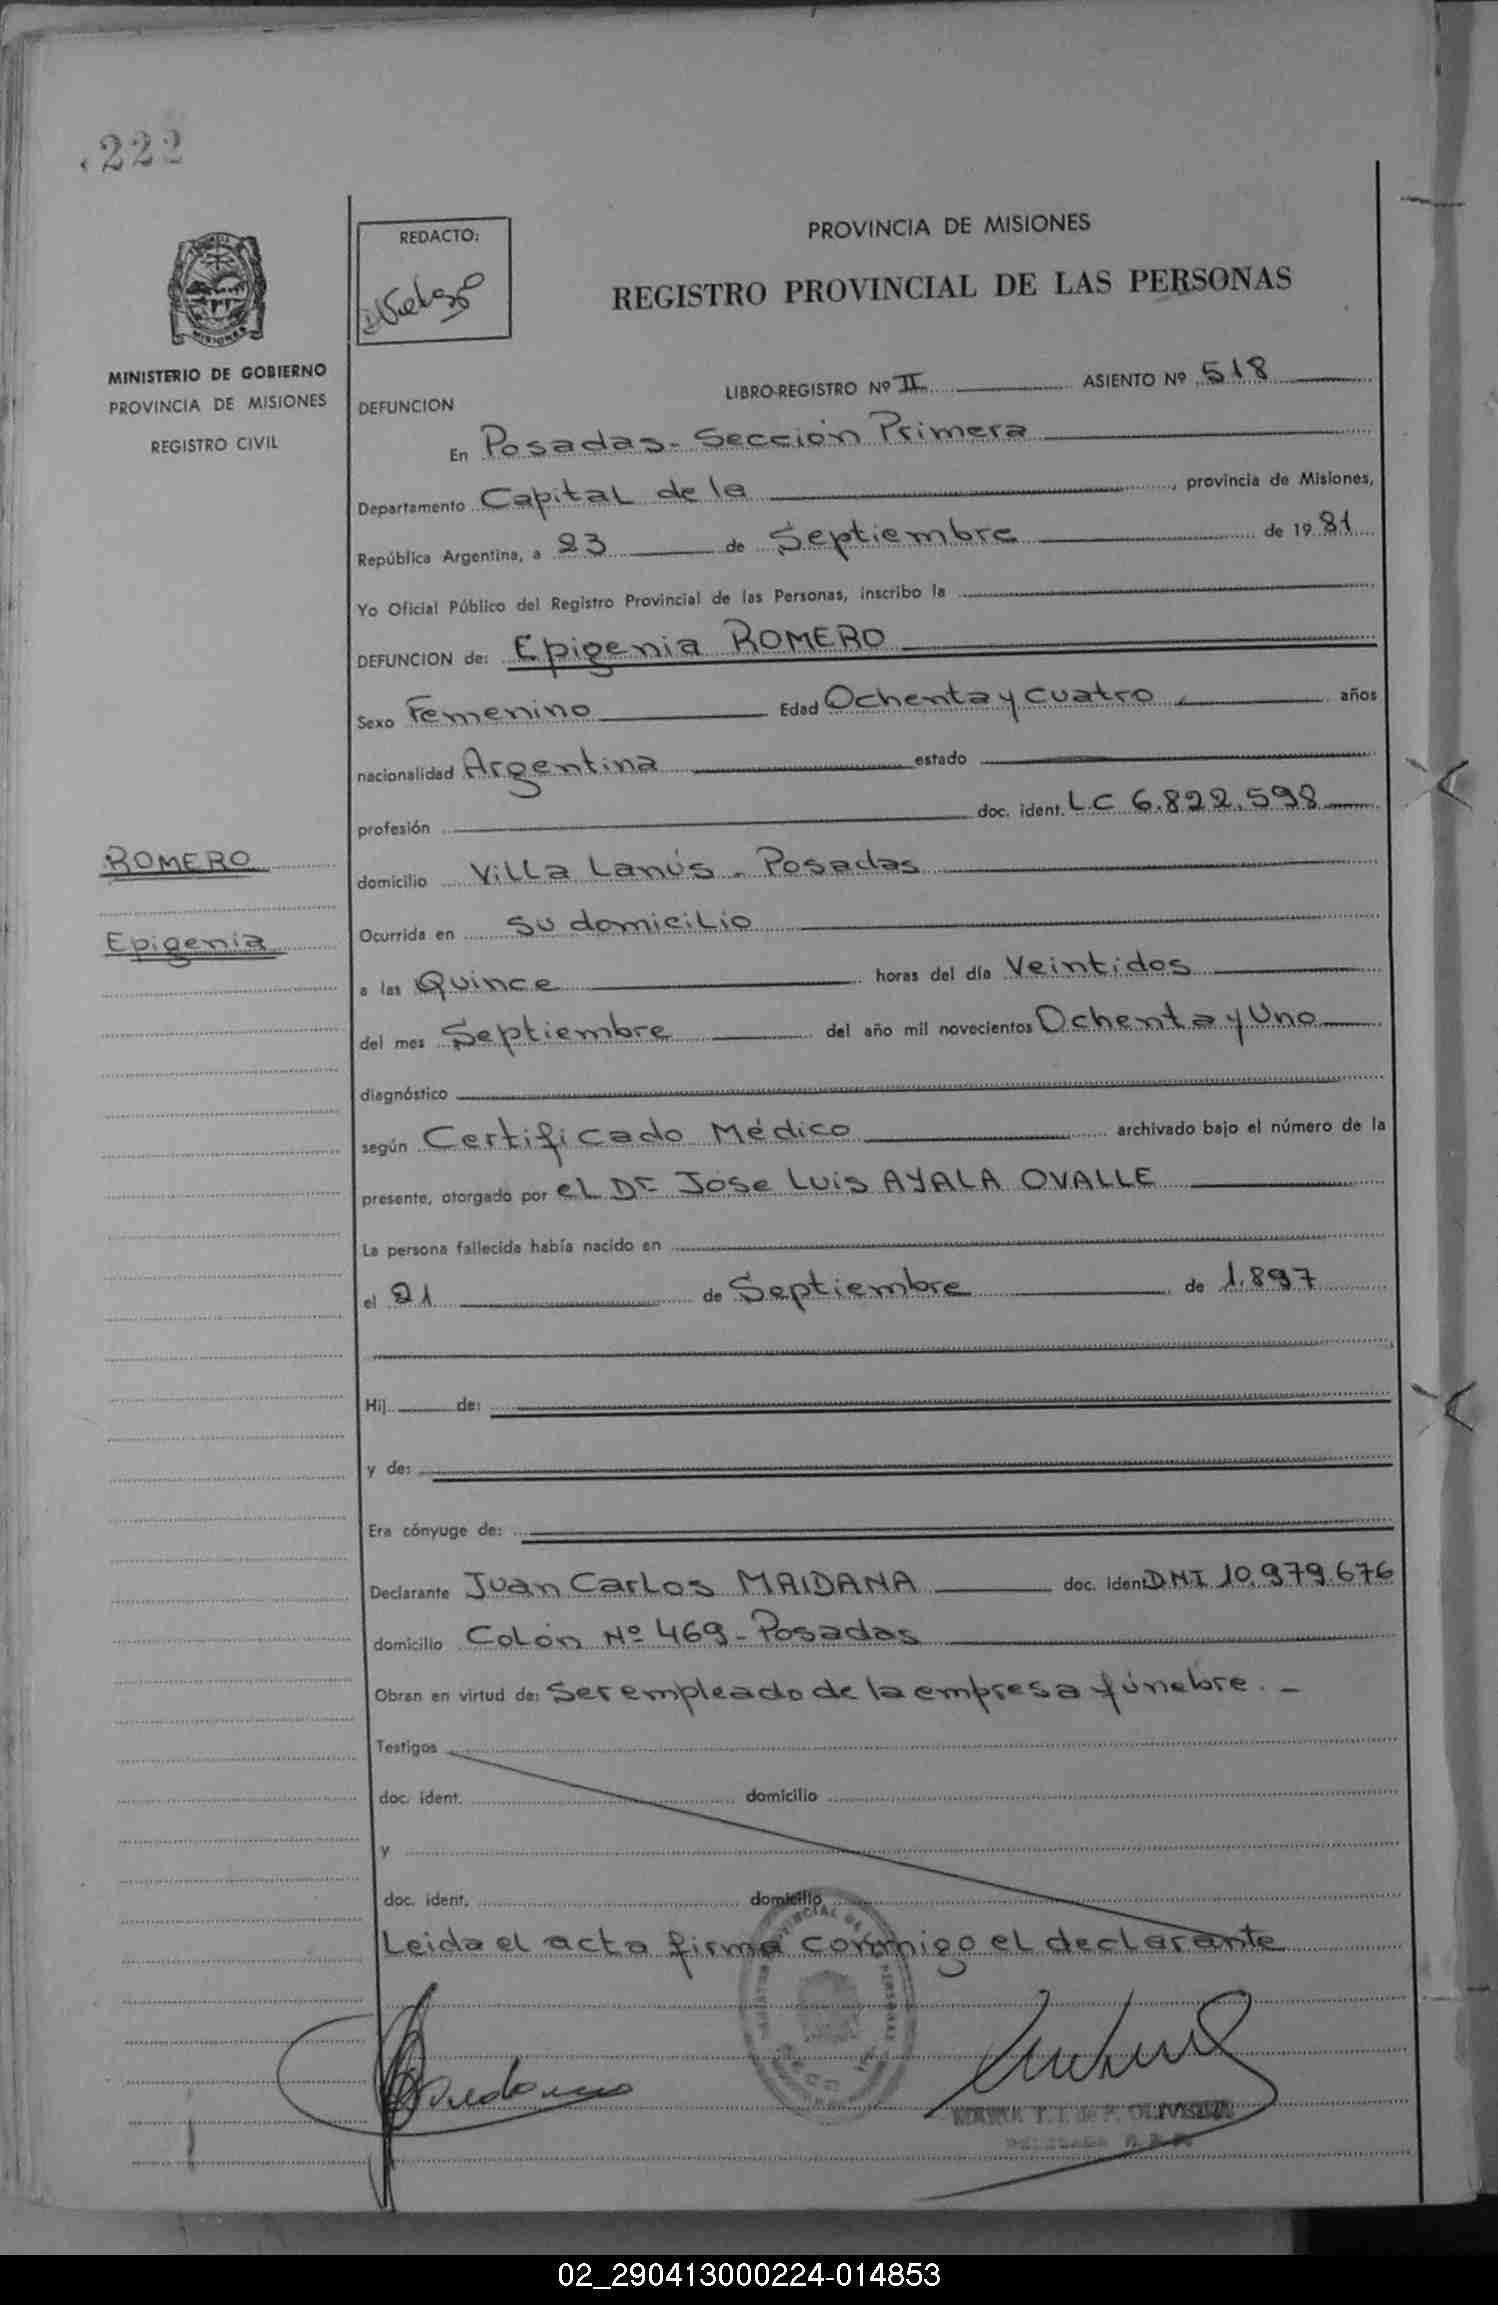 222
REDACTO:
PROVINCIA DE MISIONES
REGISTRO PROVINCIAL DE LAS PERSONAS
MISIONES
MINISTERIO DE GOBIERNO
PROVINCIA DE MISIONES
REGISTRO CIVIL
DEFUNCION LIBRO-REGISTRO Nº II ASIENTO Nº 518
En Posadas - Sección Primera
Departamento Capital de la , provincia de Misiones,
República Argentina, a 23 de Septiembre de 1981
Yo Oficial Público del Registro Provincial de las Personas, inscribo la
DEFUNCION de: Epigenia ROMERO
Sexo Femenino Edad Ochenta y cuatro años
nacionalidad Argentina estado
profesión doc. ident. LC 6.822.598
ROMERO
domicilio Villa Lanús - Posadas
Epigenia
Ocurrida en su domicilio
a las Quince horas del día Veintidos
del mes Septiembre del año mil novecientos Ochenta y Uno
diagnóstico
según Certificado Médico archivado bajo el número de la
presente, otorgado por el Dr Jose Luis AYALA OVALLE
La persona fallecida había nacido en
el 21 de Septiembre de 1.897
Hij de:
y de:
Era cónyuge de:
Declarante Juan Carlos MAIDANA doc. ident DNI 10.979.676
domicilio Colón Nº 469 - Posadas
Obran en virtud de: Ser empleado de la empresa fúnebre. -
Testigos
doc. ident. domicilio
y
doc. ident. domicilio
Leida el acta firma conmigo el declarante
02_290413000224-014853